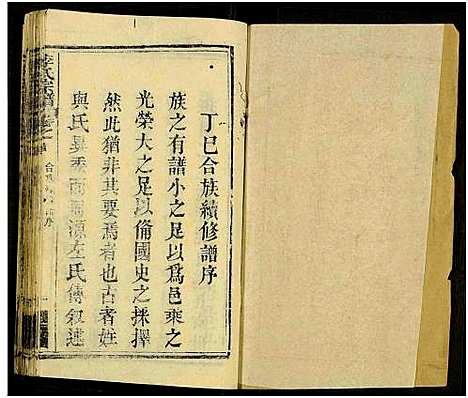 丁巳合族續修譜序
族之有譜小之足以為邑乘之
光榮大之足以備國史之採擇
然此猶非其要焉者也古者姓
與氏異而源左氏傳叙述
李氏宗譜